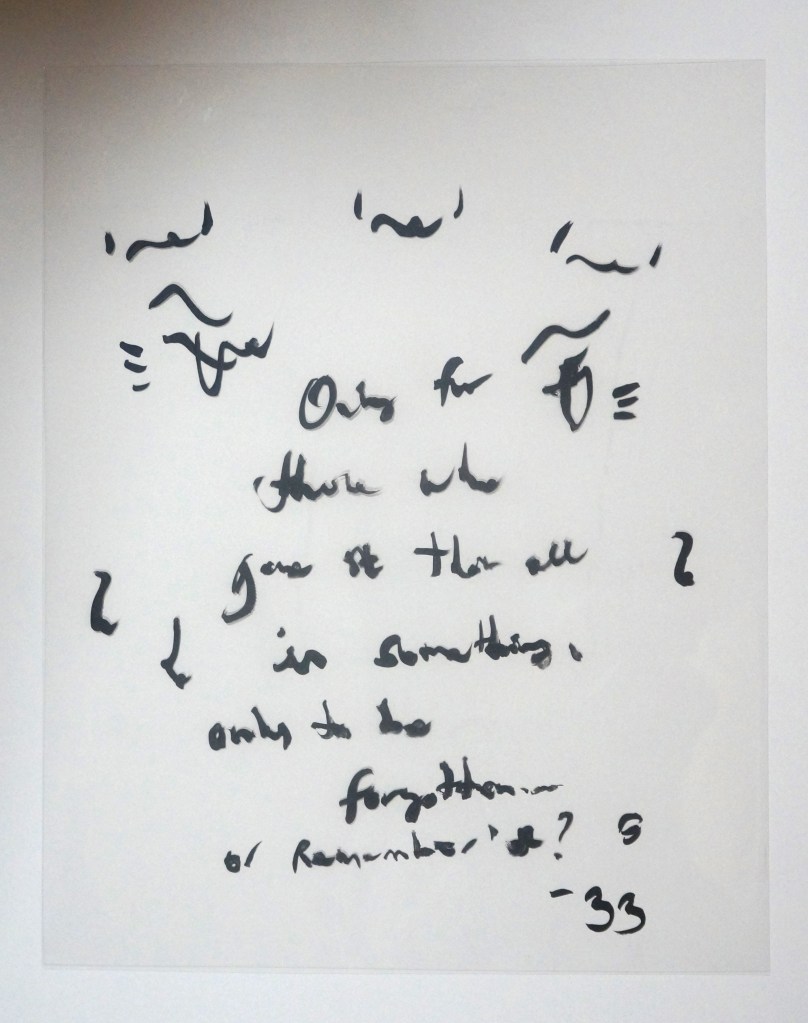 Only for
those who
gave it their all
in something,
only to be
forgotten...
or Remember'd?
-33